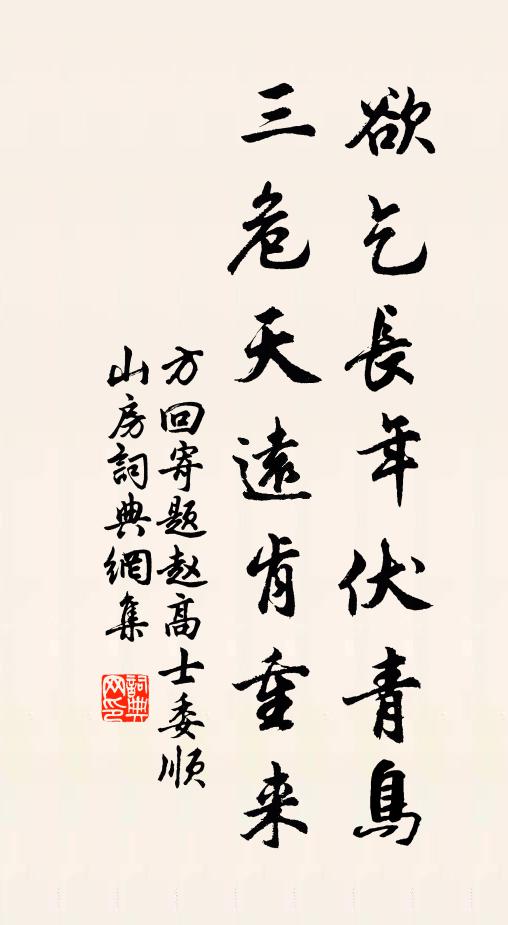 欲乞長年伏青鳥
三危天遠肯重来
方回寄题赵高士委顺
山房詞典網集
詞典网印